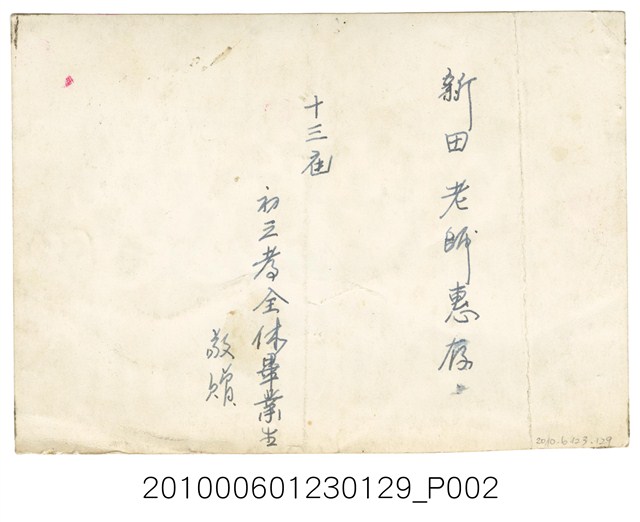 新田老師惠存
十三屆
初三孝全体畢業生
敬贈
2010.6.123.129
201000601230129_P002